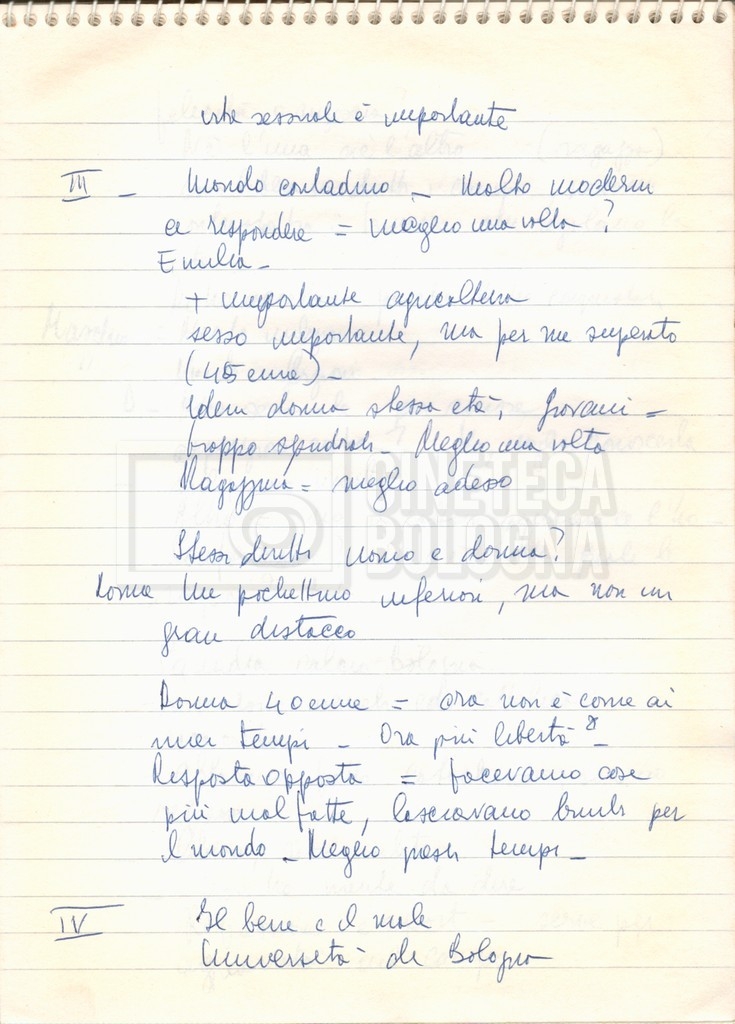 vita sessuale è importante
III - Mondo contadino - Molto moderni
a rispondere = meglio una volta?
Emilia -
+ importante agricoltura
sesso importante, ma per me superato
(45enne) -
Idem donna stessa età, Giovani =
troppo spudorati - Meglio una volta
Ragazzina = meglio adesso
CINETECA
BOLOGNA
Stessi diritti uomo e donna?
Donna Un pochettino inferiori, ma non un
gran distacco
Donna 40enne = ora non è come ai
miei tempi - Ora più libertà -
Risposta opposta = facevamo cose
più mal fatte, lasciavano bimbi per
il mondo - Meglio tempi -
IV Il bene e il male
Università di Bologna